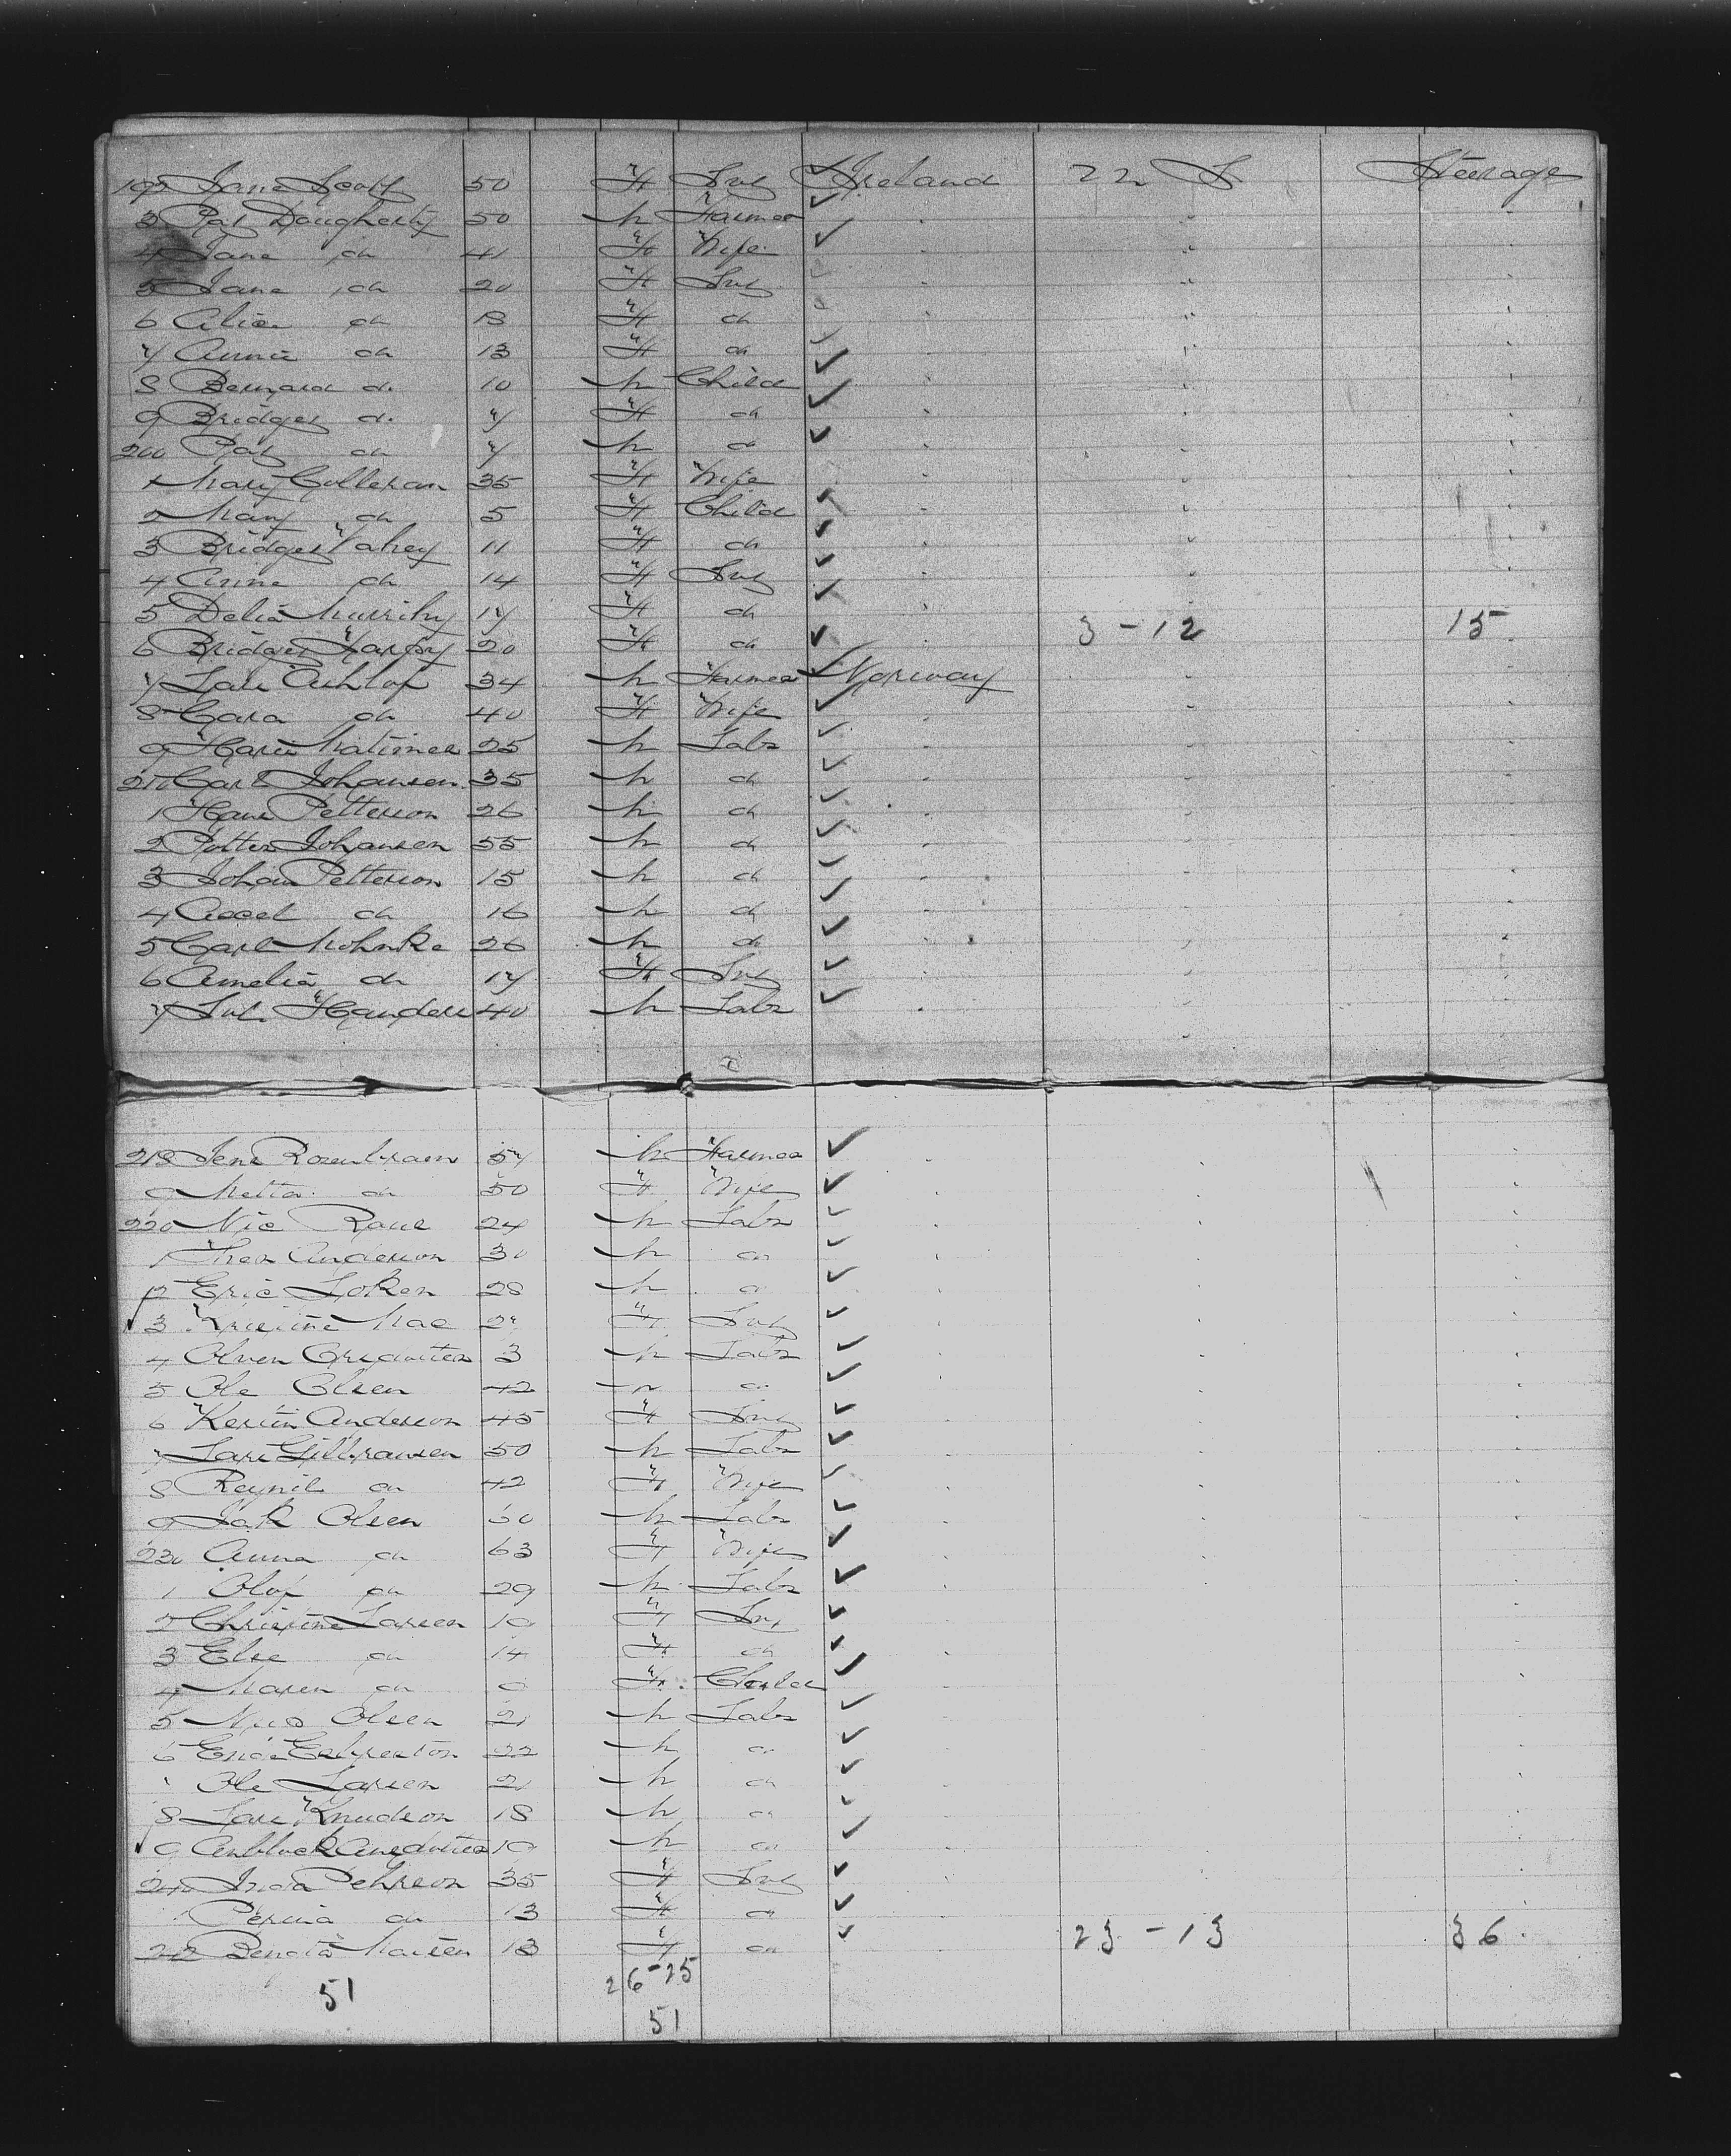 192 Jane Scott 50 F Svt Ireland 22 S Steerage
3 Pat Dougherty 50 M Farmer
4 Jane do 41 F Wife
5 Jane do 20 F Svt
6 Alice do 18 F do
7 Annie do 13 F do
8 Bernard do 10 M Child
9 Bridget do 7 F do
200 Pat do 7 M do
1 Mary Culleran 35 F Wife
2 Mary do 5 F Child
3 Bridget Fahey 11 F do
4 Anne do 14 F Svt
5 Delia Murrihy 17 F do 3-12 15
6 Bridget 20 F do
7 Lars 34 M Farmer Norway
8 Cara do 40 F Wife
9 25 M Labr
210 Carl Johansen 35 M do
1 Hans Petterson 26 M do
2 Potter Johansen 55 M do
3 Johan Petterson 15 M do
4 Accel do 16 M do
5 Carl Mohnke 26 M do
6 Amelia do 17 F Svt
7 40 M Labr
218 Jens Rosenbraom 57 M Farmer
9 Metta do 50 F Wife
220 Nic Raue 24 M Labr
1 Theo Anderson 30 M do
2 Eric Loken 28 M do
3 Kristine Moe F Svt
4 M Labr
5 Ole Olsen 42 M do
6 Kerstin Anderson 45 F Svt
7 Lars Gilbransen 50 M Labr
8 Reynil do 42 F Wife
9 Jak Olsen M Labr
230 Anna do 63 F Wife
1 Olof do 29 M Labr
2 Christine Larsen F Svt
3 Else do 14 F do
4 Maren do F Child
5 Olsen 21 M Labr
6 22 M do
Ole Larsen 21 M do
8 Lars Knudson 18 M do
9 M do
240 Pehrson 35 F Svt
1 do 13 F do
242 18 F do 23-13 36
51 26-25
51